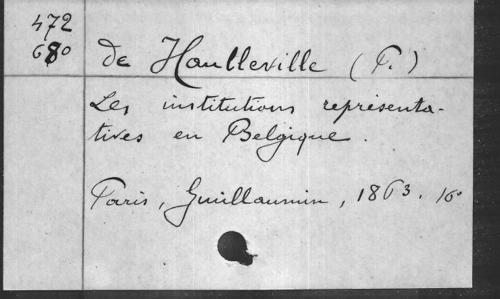 472
680
de Haulleville (P.)
Les institutions représenta-
tives en Belgique.
Paris, Guillaumin, 1863. 16°